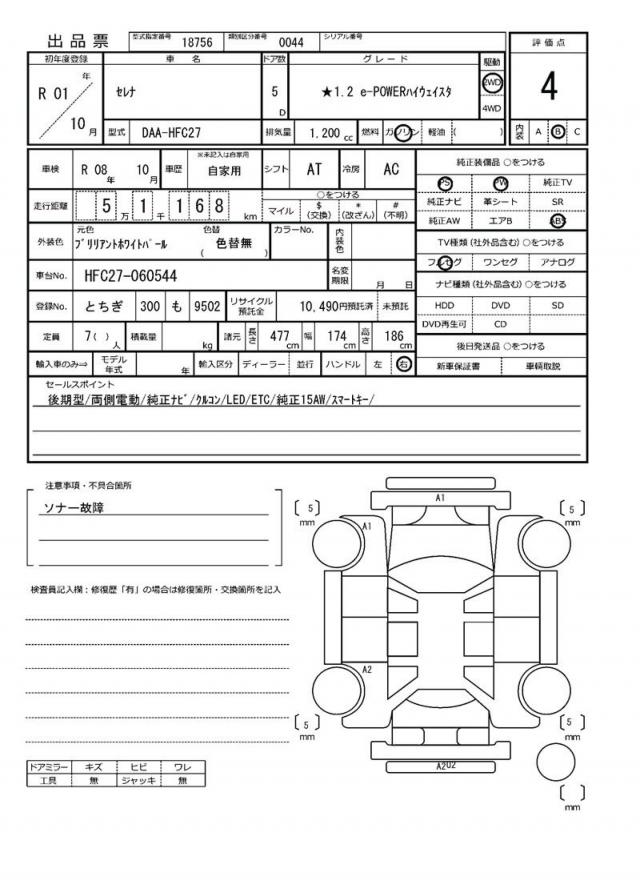 出品票 型式指定番号 18756 類別区分番号 0044 シリアル番号
評価点
4
初年度登録 車名 ドア数 グレード 駆動
年
R 01 セレナ 5 ★1.2 e-POWERハイウェイスタ 2WD
D 4WD
10 月 型式 DAA-HFC27 排気量 1,200 cc 燃料 ガソリン 軽油 ( ) 内装 A B C
車検 R 08 年 10 月 車歴 ※未記入は自家用 自家用 シフト AT 冷房 AC
走行距離 5 万 1 千 1 6 8 km ○をつける
マイル $ (交換) * (改ざん) # (不明)
外装色 元色 ブリリアントホワイトパール 色替 ( 色替無 ) カラーNo. 内装色
車台No. HFC27-060544 名変期限 月 日
登録No. とちぎ 300 も 9502 リサイクル預託金 10,490円預託済 未預託
定員 7( ) 人 積載量 kg 諸元 長さ 477 cm 幅 174 cm 高さ 186 cm
輸入車のみ⇒ モデル年式 年 輸入区分 ディーラー 並行 ハンドル 左 右
純正装備品 ○をつける
PS PW 純正TV
純正ナビ 革シート SR
純正AW エアB ABS
TV種類 (社外品含む) ○をつける
フルセグ ワンセグ アナログ
ナビ種類 (社外品含む) ○をつける
HDD DVD SD
DVD再生可 CD
後日発送品 ○をつける
新車保証書 車輌取説
セールスポイント
後期型/両側電動/純正ナビ/クルコン/LED/ETC/純正15AW/スマートキー/
注意事項・不具合箇所
ソナー故障
検査員記入欄：修復歴「有」の場合は修復箇所・交換箇所を記入
A1
5 mm
5 mm
A1
A2
5 mm
5 mm
A2U2
mm
ドアミラー キズ ヒビ ワレ
工具 無 ジャッキ 無